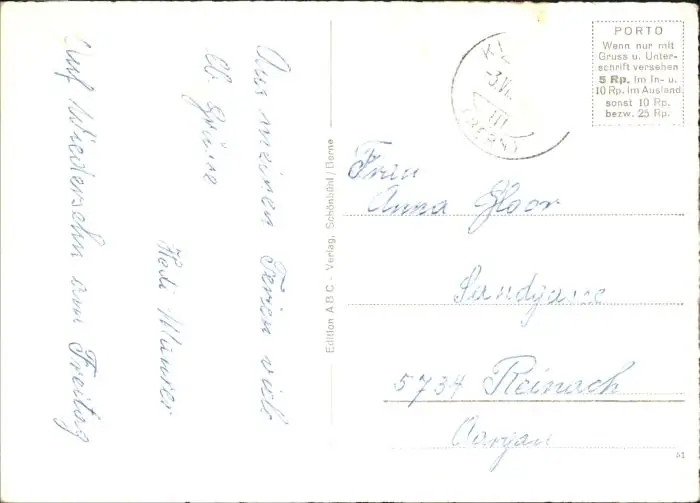 Aus meinen Ferien viele
lb. Grüsse
Hedi Maurer
Auf Wiedersehn am Freitag
Edition ABC - Verlag, Schönbühl / Berne
PORTO
Wenn nur mit
Gruss u. Unter-
schrift versehen
5 Rp. im In- u.
10 Rp. im Ausland
sonst 10 Rp.
bezw. 25 Rp.
Frau
Anna Gloor
Sandgasse
5734 Reinach
Aargau
51